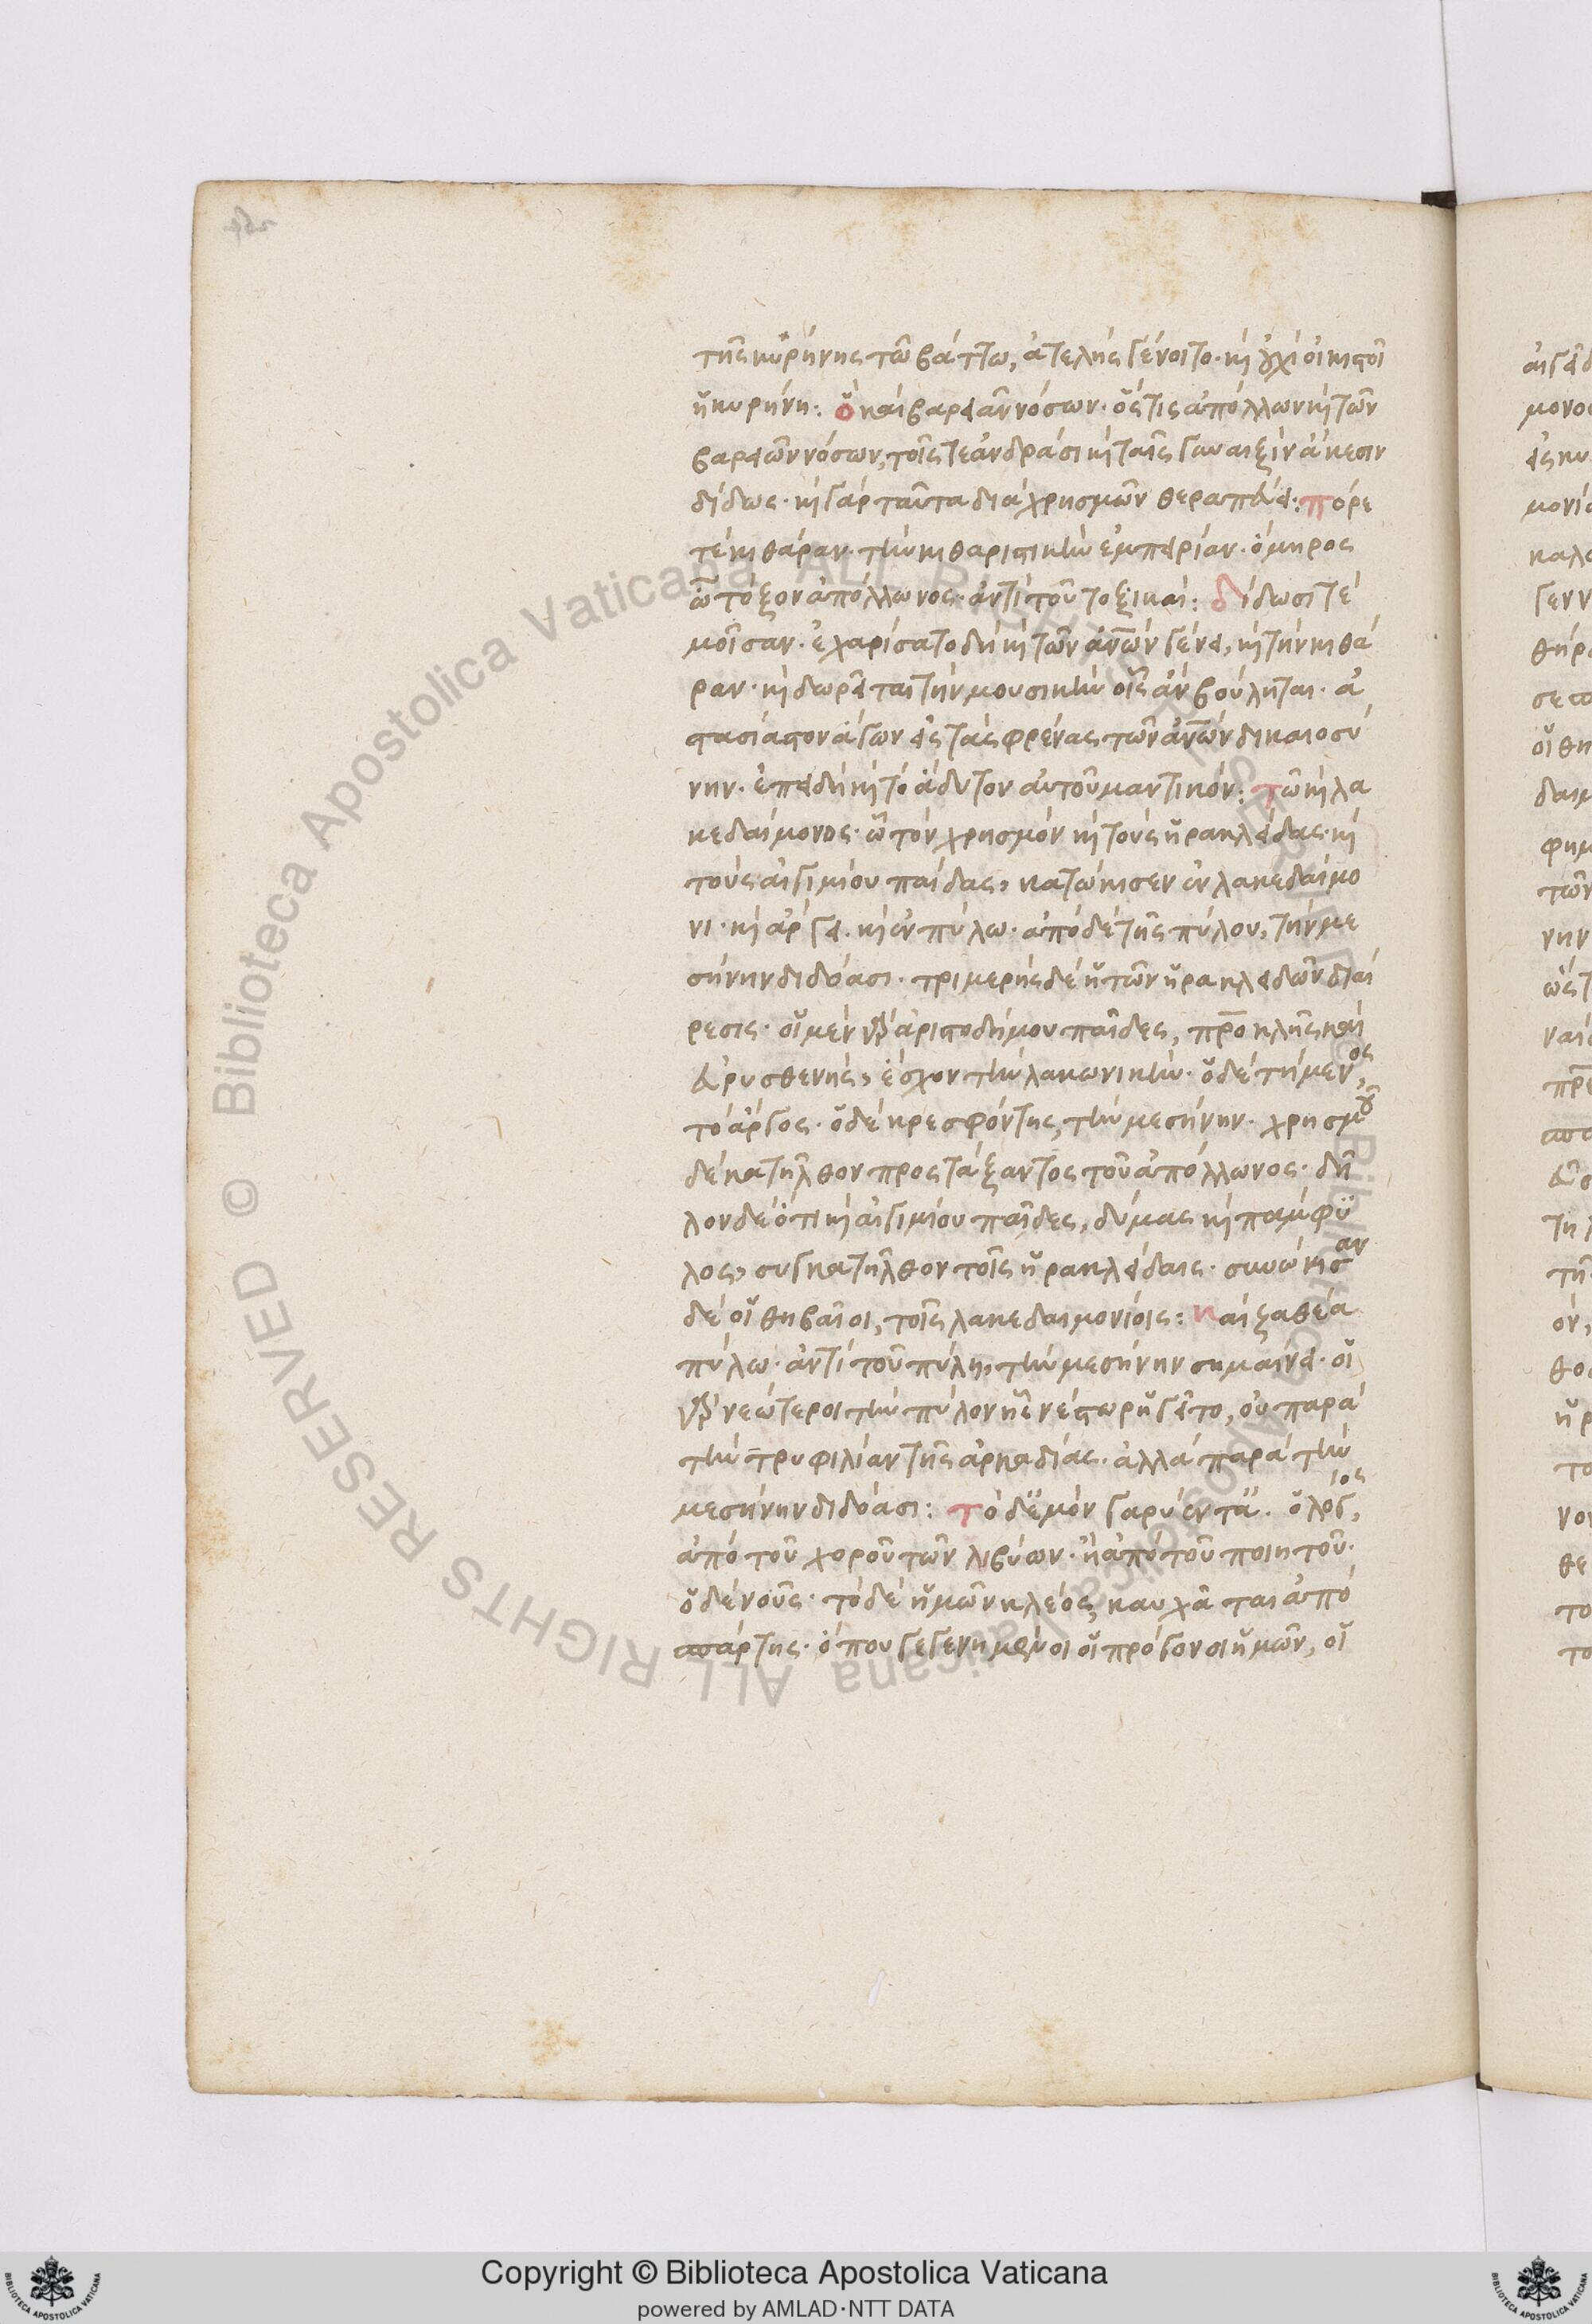 της κυρήνης τῶ βάττω, ἀτελὴς γένοιτο· καὶ οὐχὶ οἰκιστοῖ
ἡ κυρήνη: ὃ καὶ βαρειᾶν νόσων· ὅστις ἀπόλλων καὶ τῶν
βαρειῶν νόσων, τοῖς τε ἀνδράσι καὶ ταῖς γυναιξὶν ἄκεσιν
δίδως· καὶ γὰρ ταῦτα διὰ χρησμῶν θεραπεύει: πόρε
τε κιθάραν· τὴν κιθαριστικὴν ἐμπειρίαν· ὅμηρος
ὦ τόξον ἀπόλλωνος· ἀντὶ τοῦ τοξικαί: δίδωσί τε
μοῖσαν· ἐχαρίσατο δὴ καὶ τῶν ἀνων γένει, καὶ τὴν κιθά
ραν· καὶ δωρεῖται τὴν μουσικὴν οἷς ἂν βούληται· ἀ
στασίαστον ἄγων εἰς τὰς φρένας τῶν ἀνων δικαιοσύ
νην· ἐπειδὴ καὶ τὸ ἄδυτον αὐτοῦ μαντικόν: τῶ καὶ λα
κεδαίμονος· ὦ τὸν χρησμὸν καὶ τοὺς ἡρακλείδας· καὶ
τοὺς αἰγιμίου παίδας, κατώκισεν ἐν λακεδαίμο
νι· καὶ ἄργει· καὶ ἐν πύλω· ἀπὸ δὲ τῆς πύλου, τὴν με
σήνην διδόασι· τριμερὴς δὲ ἡ τῶν ἡρακλειδῶν διαί
ρεσις· οἱ μὲν γὰρ ἀριστοδήμου παῖδες, προκλῆς καὶ
εὐρυσθενὴς, ἔσχον τὴν λακωνικὴν· ὁ δὲ τήμενος,
τὸ ἄργος· ὁ δὲ κρεσφόντης, τὴν μεσήνην· χρησμοῦ
δὲ κατῆλθον προστάξαντος τοῦ ἀπόλλωνος· δῆ
λον δὲ ὅτι καὶ αἰγιμίου παῖδες, δύμας καὶ πάμφυ
λος, συγκατῆλθον τοῖς ἡρακλείδαις· συνώκισαν
δὲ οἱ θηβαῖοι, τοῖς λακεδαιμονίοις: καὶ ζαθέα
πύλω· ἀντὶ τοῦ πύλη, τὴν μεσήνην σημαίνει· οἱ
γὰρ νεώτεροι τὴν πύλον ἧς νέστωρ ἡγεῖτο, οὐ παρὰ
τὴν τρυφιλίαν τῆς ἀρκαδίας· ἀλλὰ παρὰ τὴν
μεσήνην διδόασι: τὸ δ' ἐμὸν γαρύεντα· ὁ λόγος,
ἀπὸ τοῦ χοροῦ τῶν λιβύων· ἢ ἀπὸ τοῦ ποιητοῦ·
ὁ δὲ νοῦς· τὸ δὲ ἡμῶν κλέος, καυχᾶται ἀπὸ
σπάρτης· ὅπου γεγενημένοι οἱ πρόγονοι ἡμῶν, οἱ